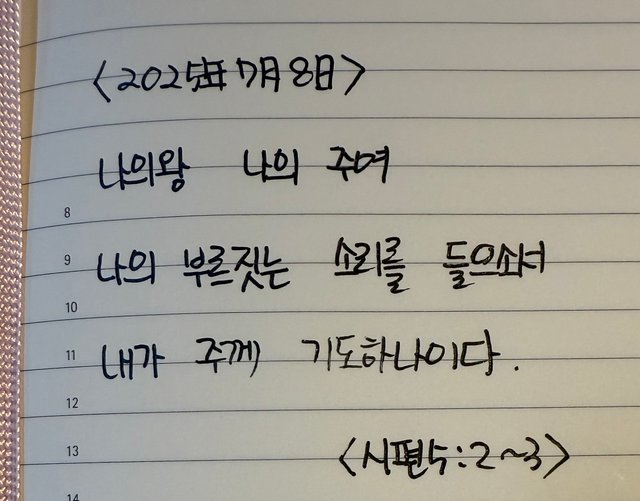 <2025年 7月 8日>
나의왕 나의 주여
8
9 나의 부르짓는 소리를 들으소셔
10
11 내가 주께 기도하나이다.
12
13 <시편5:2~3>
14